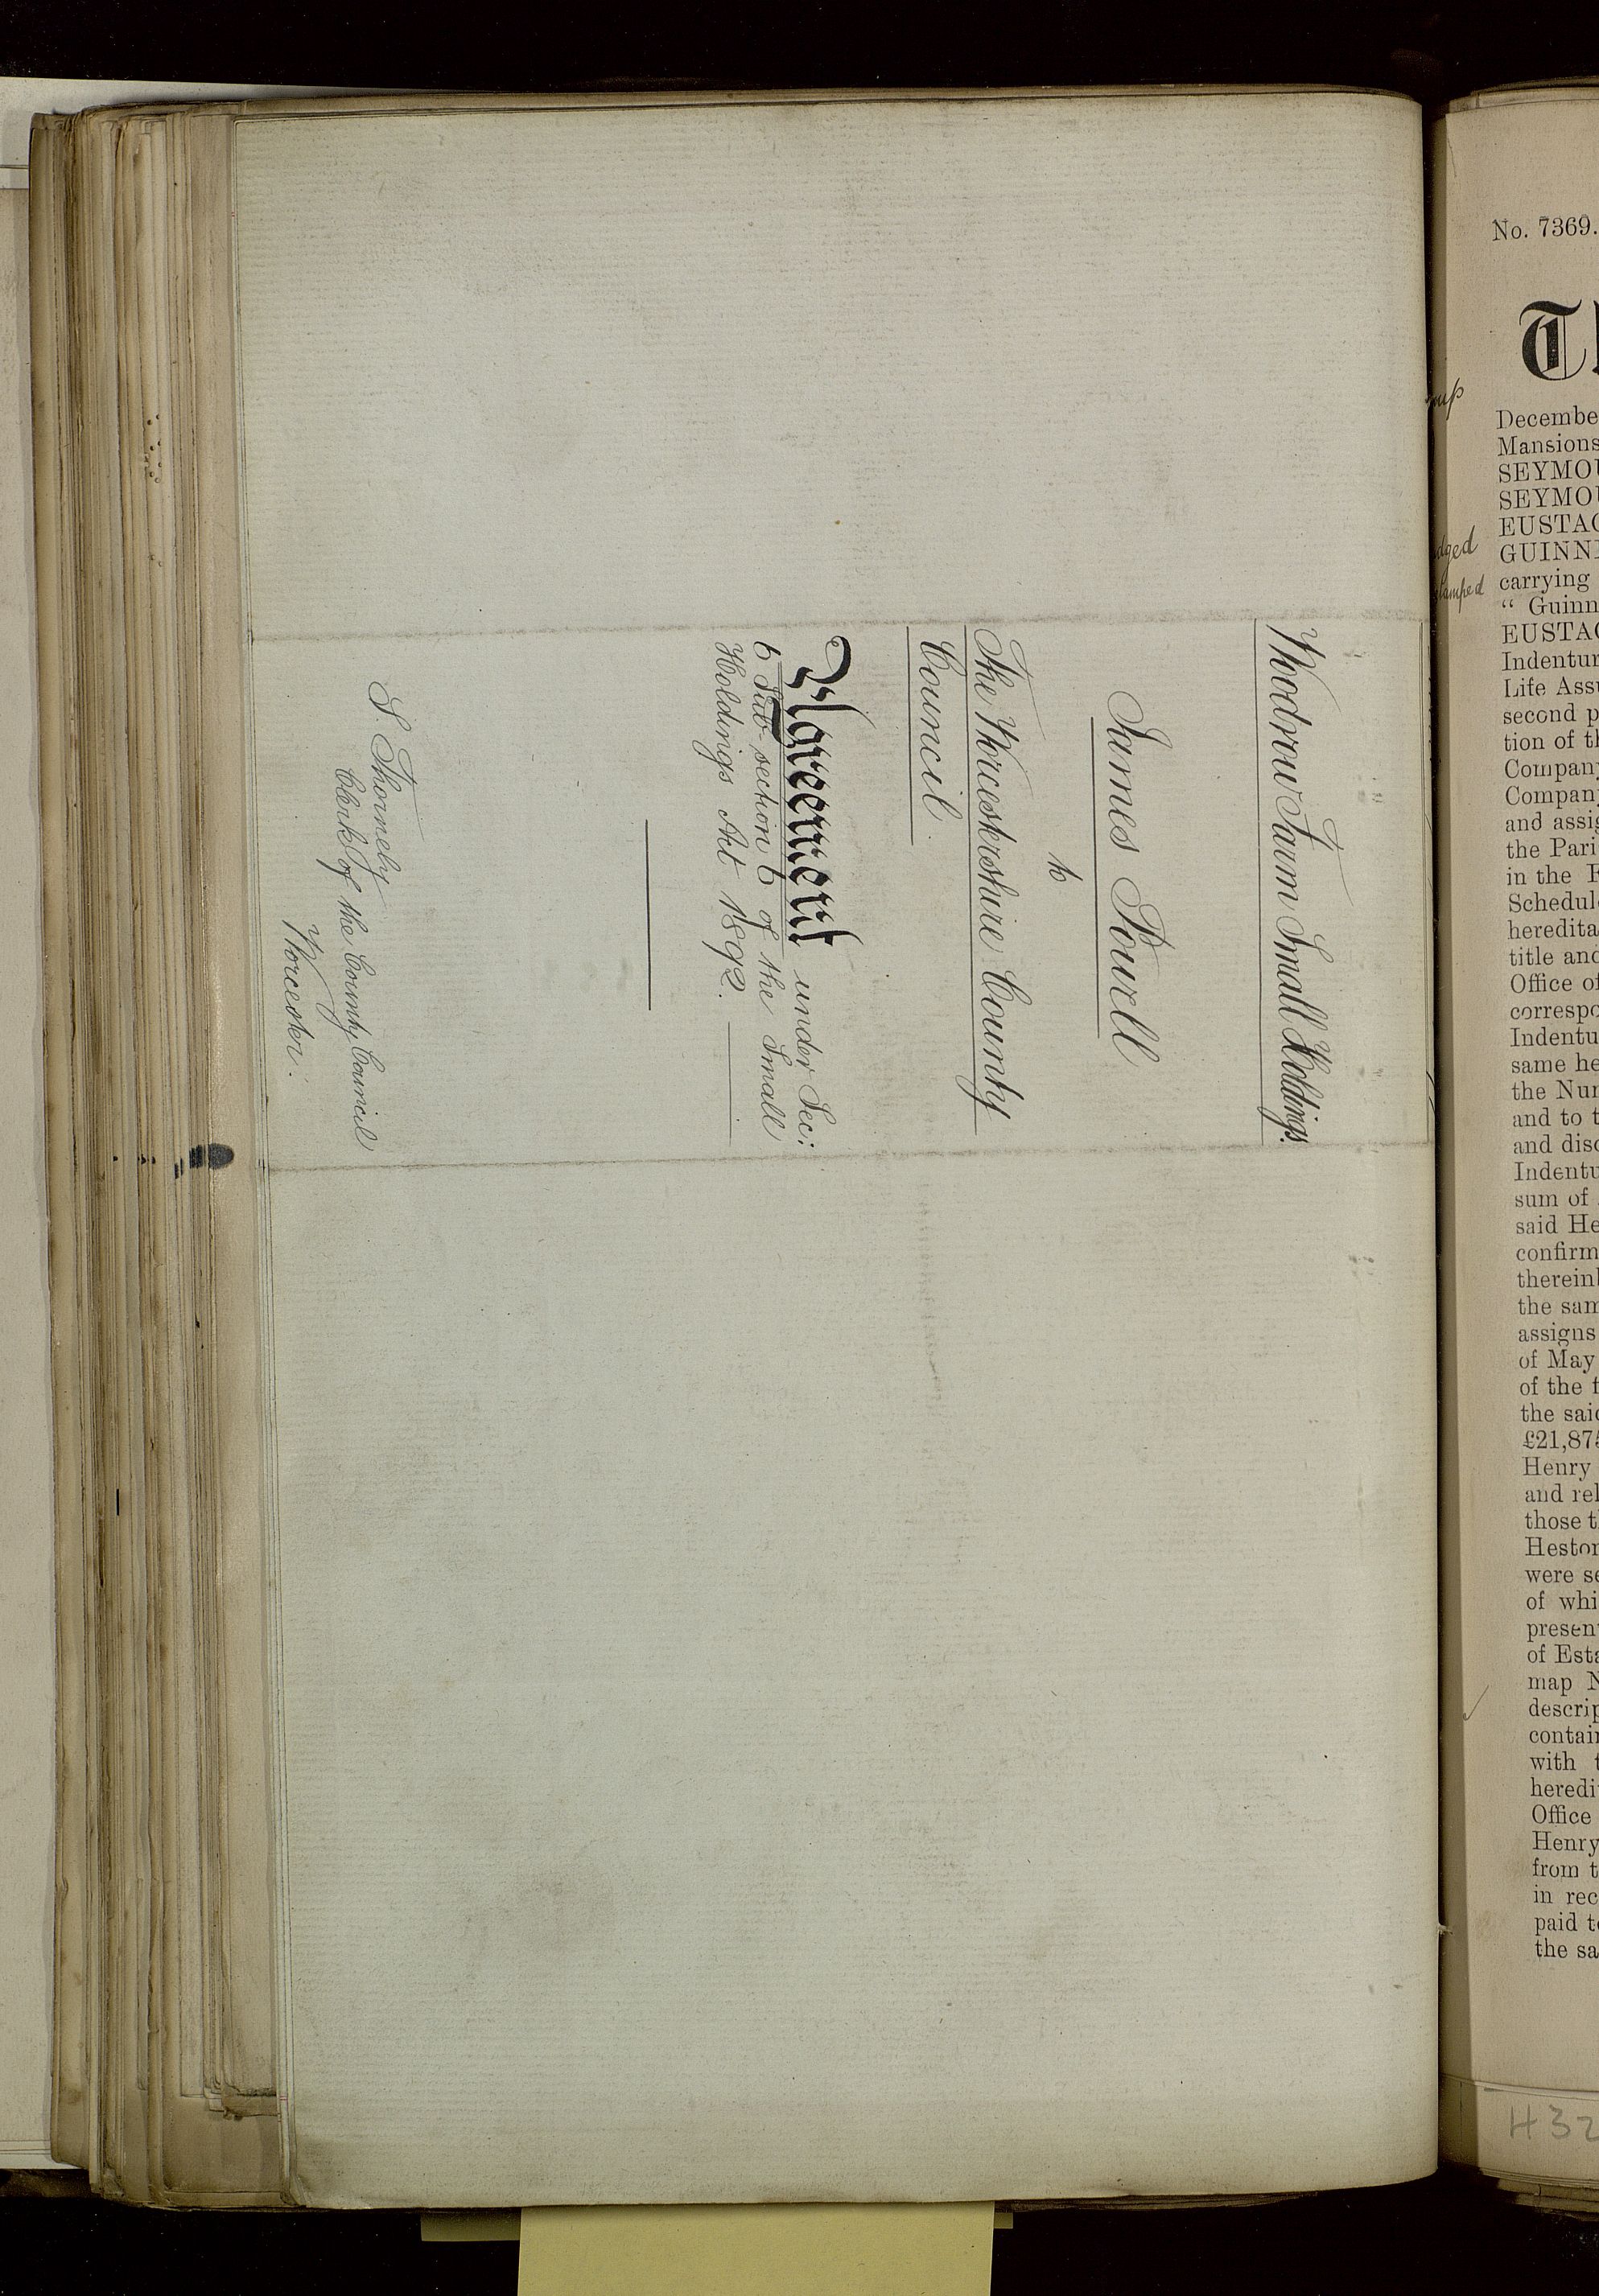 Woodrow Farm Small Holdings.
James Powell
to
The Worcestershire County
Council.
Agreement under Sec:
6 Sub-section 6 of the Small
Holdings Act 1892.
S. Thornely
Clerk of the County Council
Worcester.
No. 7369.
Decembe
Mansions
SEYMOU
SEYMOU
EUSTAC
GUINN
carrying
" Guinn
EUSTAC
Indentur
Life Assu
second p
tion of th
Company
Company
and assig
the Pari
in the
Schedul
heredita
title and
Office of
correspo
Indentu
same he
the Nu
and to t
and disc
Indentu
sum of
said He
confirm
therein
the sam
assigns
of May
of the
the said
£21,875
Henry
and rel
those t
Heston
were se
of whi
present
of Esta
map N
descrip
contain
with
heredi
Office
Henry
from t
in rec
paid to
the sa
H32